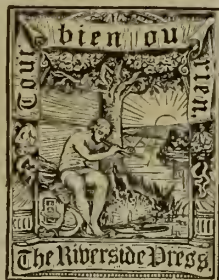 Tout
bien ou
rien.
The Riverside Press